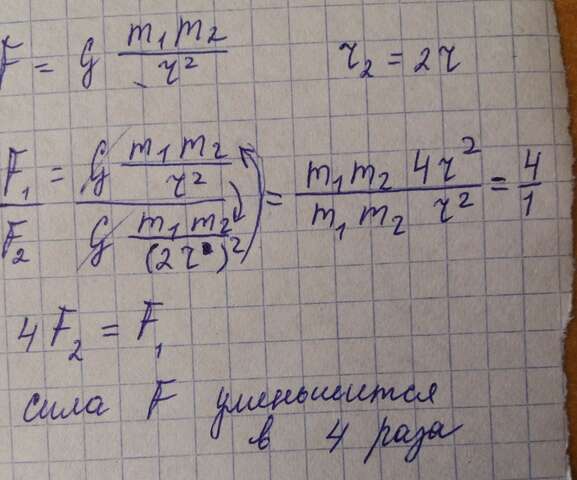 F = G m₁m₂/r² r₂ = 2r
F₁/F₂ = (G m₁m₂/r²)/(G m₁m₂/(2r)²) = m₁m₂ 4r²/m₁m₂ r² = 4/1
4F₂ = F₁
сила F уменьшится
в 4 раза